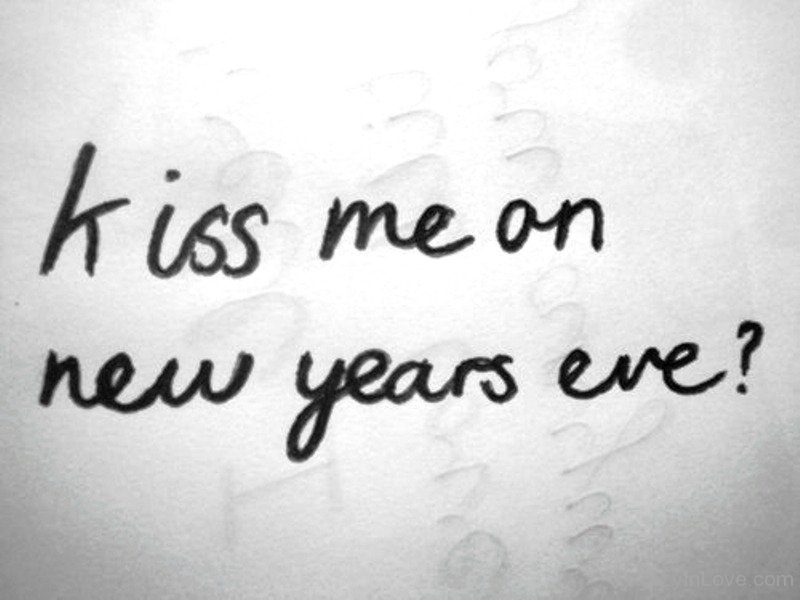 kiss me on
new years eve?
InLove.com